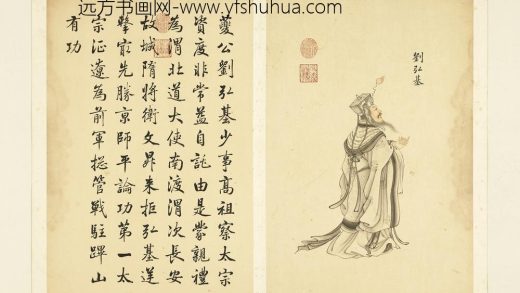 远方书画网-www.yfshuhua.com
劉弘基
夔公劉弘基少事髙祖察太宗
資度非常益自託由是蒙親禮
為渭北道大使南渡渭次長安
故城隋將衛文昇来拒弘基逆
擊㝡先勝京師平論功第一太
宗征遼為前軍揔管戰駐蹕山
有功